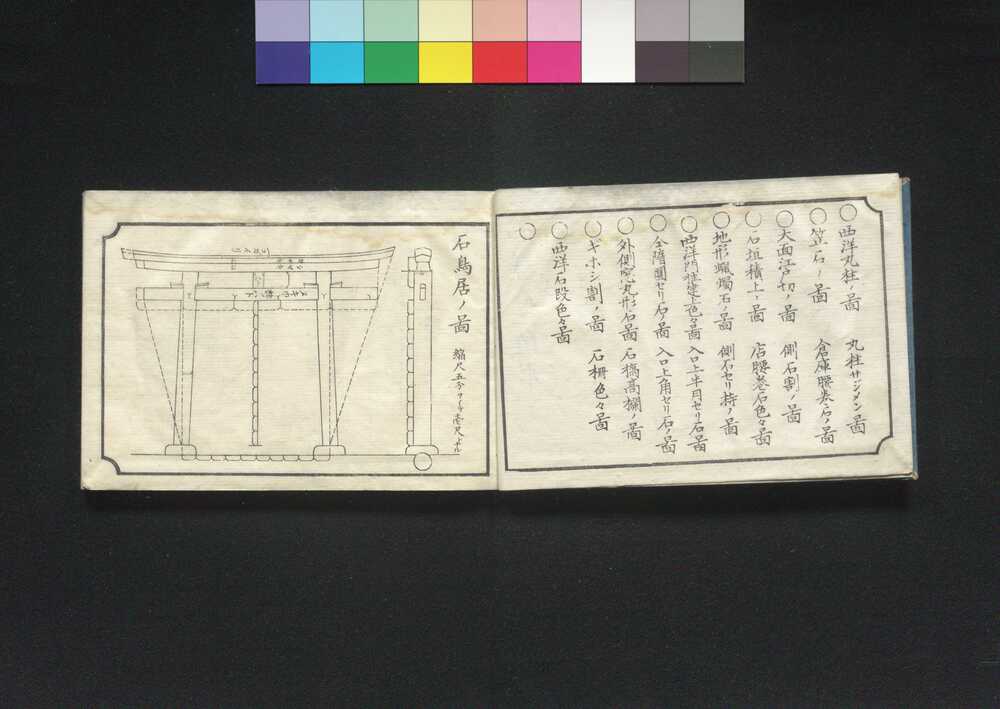 西洋丸柱ノ圖 丸柱サジメンノ圖
笠石ノ圖 倉庫腰巻石ノ圖
大面江戸切ノ圖 側石割ノ圖
石垣積上ノ圖 店腰巻石色々圖
地形蝋燭石ノ圖 側石セリ持ノ圖
西洋門柱建上色々圖 入口上半月セリ石圖
全隋圓セリ石ノ圖 入口上角セリ石ノ圖
外側窓丸形石圖 石橋高欄ノ圖
ギボシ割ノ圖 石柵色々圖
西洋石段色々圖
石鳥居ノ圖
縮尺五分ヲ以テ壱尺トス